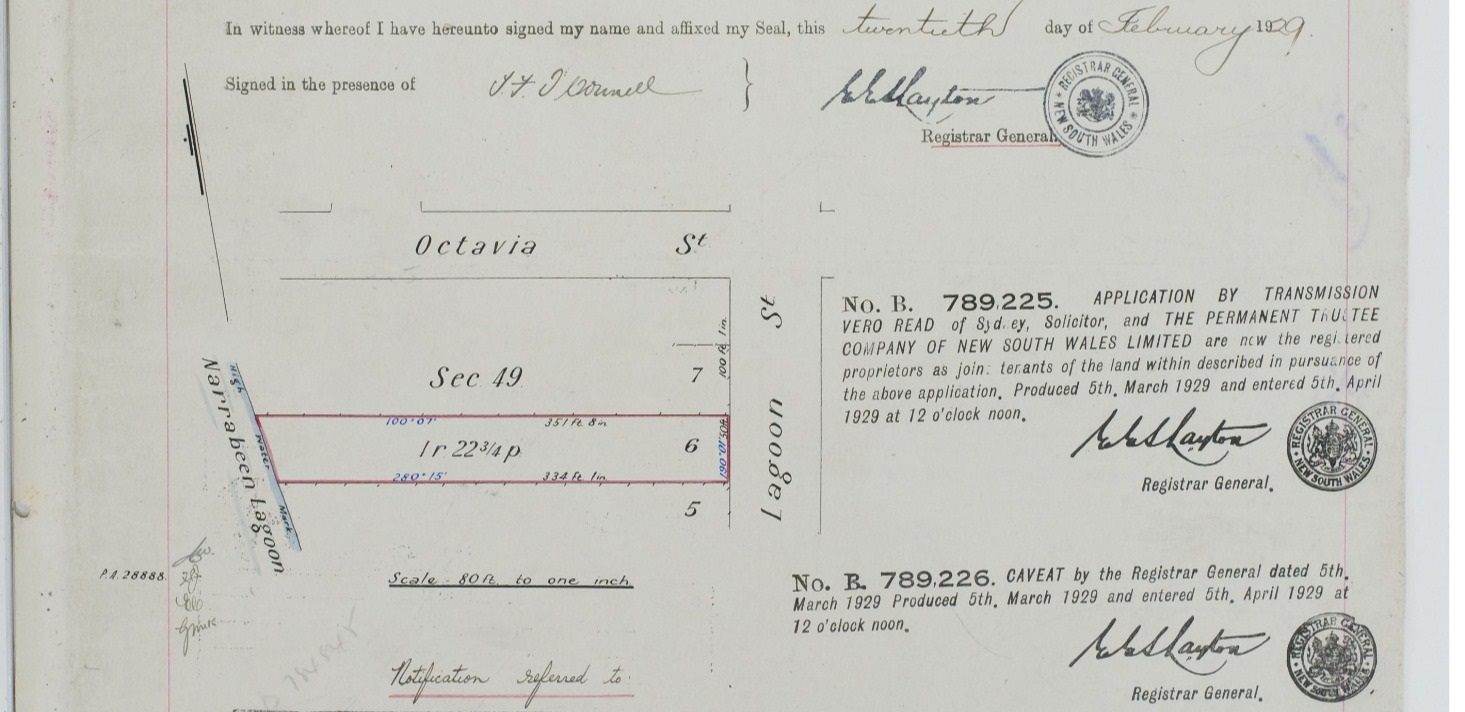 In witness whereof I have hereunto signed my name and affixed my Seal, this twentieth day of February 1929.
Signed in the presence of
Registrar General.
REGISTRAR GENERAL NEW SOUTH WALES
Octavia St
Lagoon St
Sec 49
7
100 ft 1in.
100°07'
351 ft. 8in
1r 22 3/4 p
6
280°15'
334 ft. 1in
5
High Water Mark
Narrabeen Lagoon
Scale - 80 ft. to one inch.
P.A. 28888.
Notification referred to
No. B. 789,225. APPLICATION BY TRANSMISSION
VERO READ of Syd.ey, Solicitor, and THE PERMANENT TRUSTEE
COMPANY OF NEW SOUTH WALES LIMITED are now the regi.tered
proprietors as join: tenants of the land within described in pursuance of
the above application. Produced 5th. March 1929 and entered 5th. April
1929 at 12 o'clock noon.
REGISTRAR GENERAL NEW SOUTH WALES
Registrar General.
No. B. 789,226. CAVEAT by the Registrar General dated 5th.
March 1929 Produced 5th. March 1929 and entered 5th. April 1929 at
12 o'clock noon.
REGISTRAR GENERAL NEW SOUTH WALES
Registrar General.